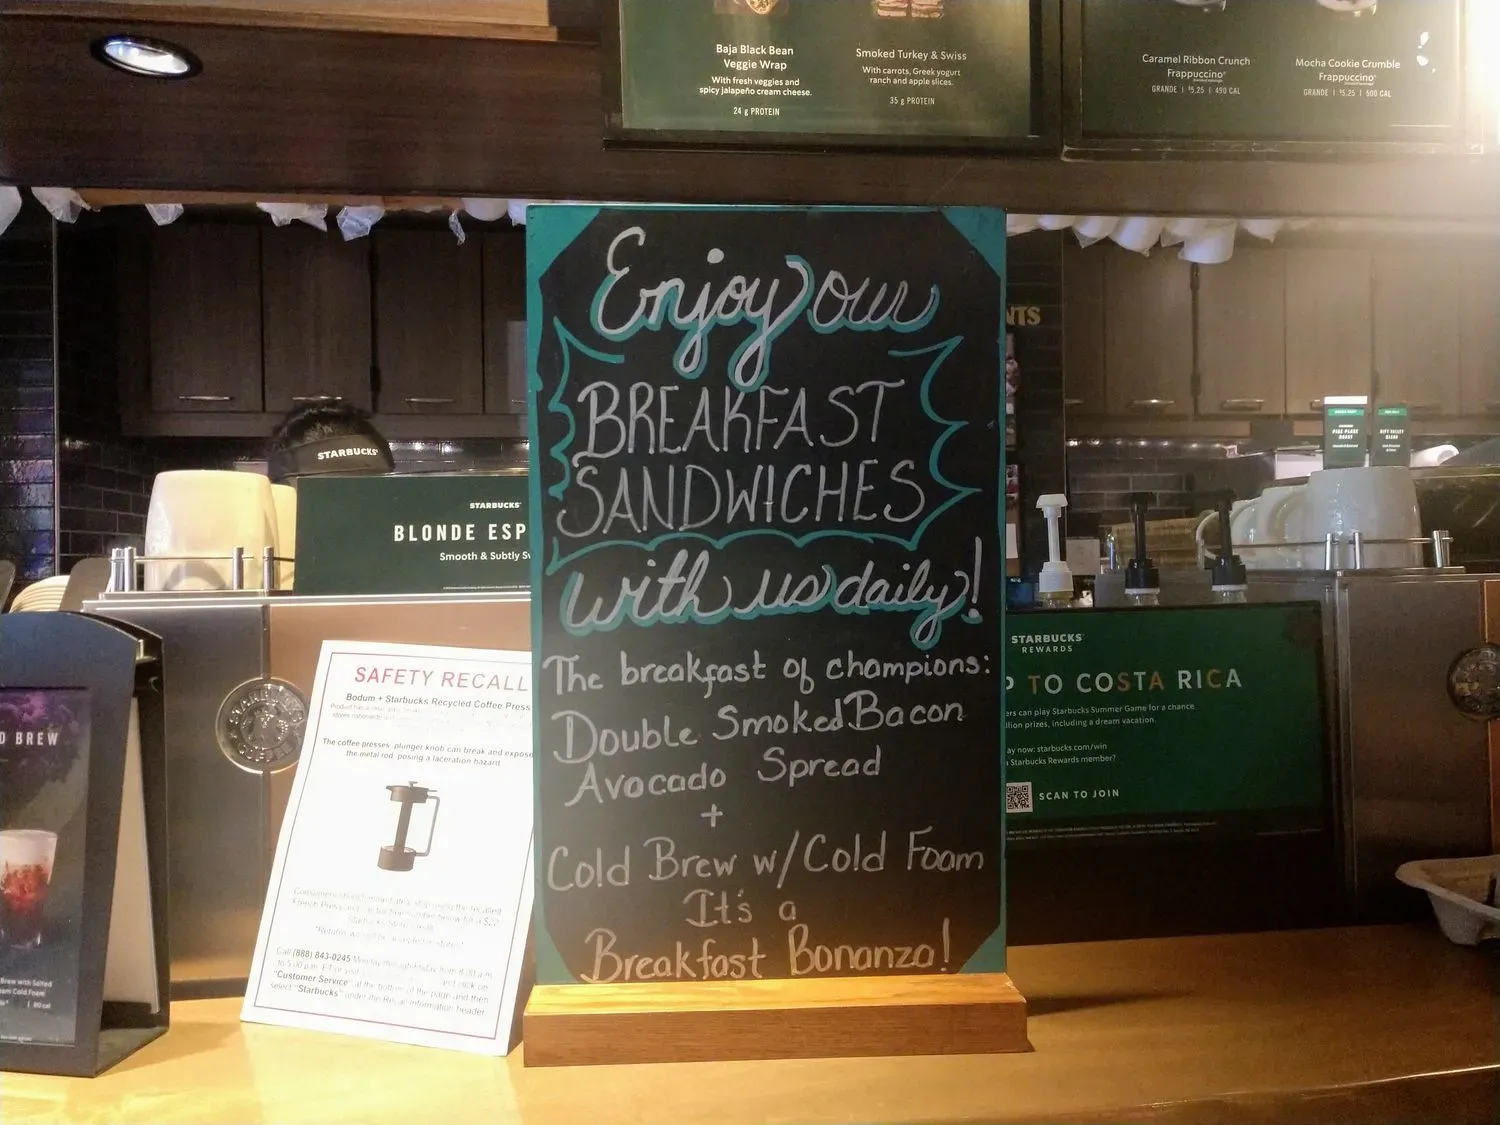 Baja Black Bean
Veggie Wrap
With fresh veggies and
spicy jalapeño cream cheese.
24 g PROTEIN
Smoked Turkey & Swiss
With carrots, Greek yogurt
ranch and apple slices.
35 g PROTEIN
Caramel Ribbon Crunch
Frappuccino®
GRANDE | $5.25 | 490 CAL
Mocha Cookie Crumble
Frappuccino®
GRANDE | $5.25 | 500 CAL
Enjoy our
BREAKFAST
SANDWICHES
with us daily!
The breakfast of champions:
Double Smoked Bacon
Avocado Spread
+
Cold Brew w/Cold Foam
It's a
Breakfast Bonanza!
NTS
STARBUCKS®
STARBUCKS®
BLONDE ESP
Smooth & Subtly Sw
SAFETY RECALL
Bodum + Starbucks Recycled Coffee Press
The coffee presses plunger knob can break and expose
the metal rod posing a laceration hazard.
Call (888) 843-0245 Monday through Friday from 8:30 a.m.
"Customer Service" at the bottom of the page and then
select "Starbucks" under the Recall Information header.
D BREW
Brew with Salted
am Cold Foam
STARBUCKS
COFFEE
PIKE PLACE
ROAST
STARBUCKS®
REWARDS
P TO COSTA RICA
ers can play Starbucks Summer Game for a chance
llion prizes, including a dream vacation.
ay now: starbucks.com/win
a Starbucks Rewards member?
SCAN TO JOIN